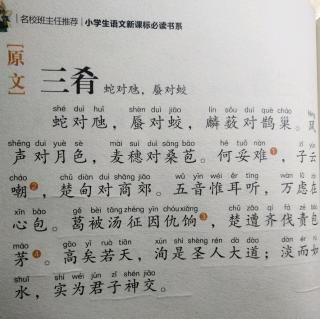 名校班主任推荐|小学生语文新课标必读书系
[原文]
三肴 蛇对虺，蜃对蛟
shé duì huǐ shèn duì jiāo lín sǒu duì què cháo fēng
蛇对虺，蜃对蛟，麟薮对鹊巢。风
shēng duì yuè sè mài suì duì sāng bāo hé tuǒ nàn zǐ yún
声对月色，麦穗对桑苞。何妥难❶，子云
cháo chǔ diàn duì shāng jiāo wǔ yīn wéi ěr tīng wàn lǜ zài
嘲❷，楚甸对商郊。五音惟耳听，万虑在
xīn bāo gě bèi tāng zhēng yīn chóu xiǎng chǔ zāo qí fá zé bāo
心包。葛被汤征因仇饷❸，楚遭齐伐责包
máo gāo yǐ ruò tiān xún shì shèng rén dà dào dàn ér rú
茅❹。高矣若天，洵是圣人大道；淡而如
shuǐ shí wéi jūn zǐ shén jiāo
水，实为君子神交。